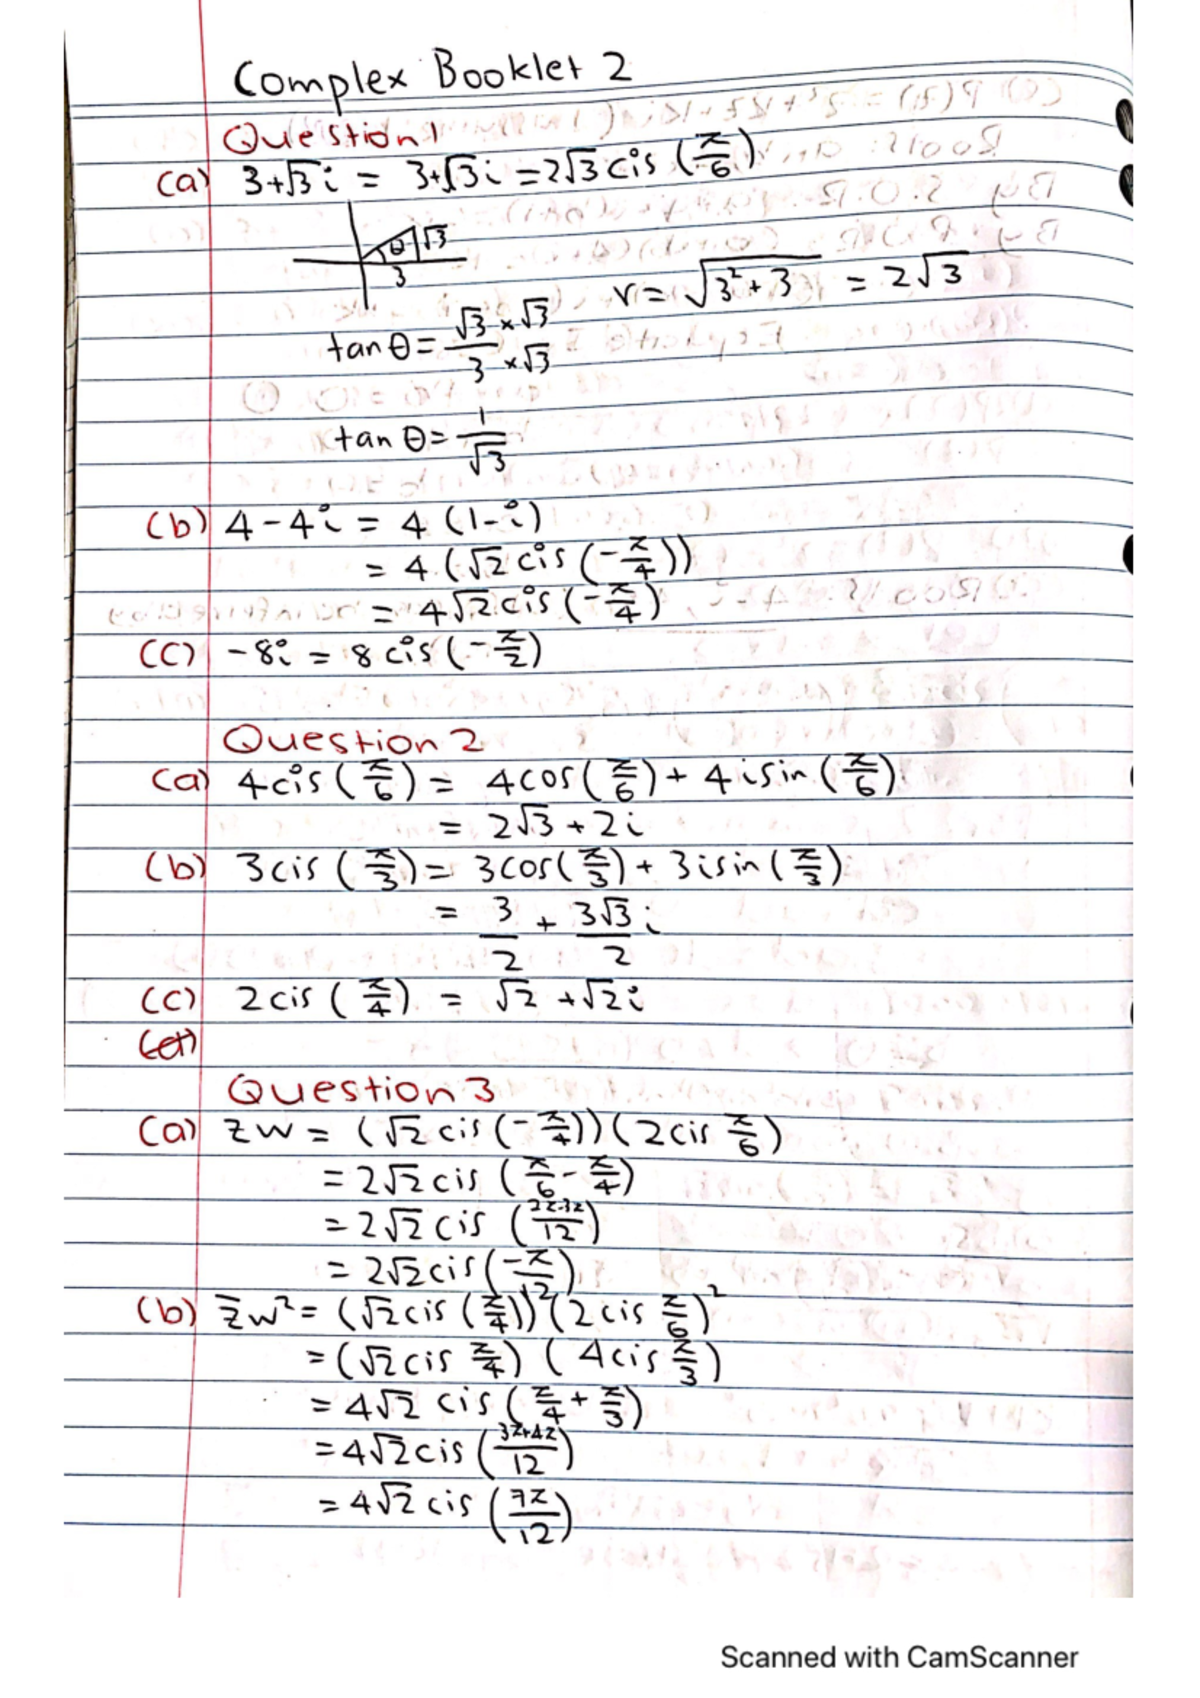 Complex Booklet 2
Question 1
(a) 3+√3i = 3+√3i = 2√3 cis (π/6)
θ √3
3
r = √(3² + 3) = 2√3
tan θ = √3 ×√3 / 3 ×√3
tan θ = 1/√3
(b) 4 - 4i = 4 (1-i)
= 4 (√2 cis (-π/4))
= 4√2 cis (-π/4)
(c) -8i = 8 cis (-π/2)
Question 2
(a) 4 cis (π/6) = 4 cos (π/6) + 4 i sin (π/6)
= 2√3 + 2i
(b) 3 cis (π/3) = 3 cos (π/3) + 3 i sin (π/3)
= 3/2 + 3√3/2 i
(c) 2 cis (π/4) = √2 + √2i
Question 3
(a) zw = (√2 cis (-π/4)) (2 cis π/6)
= 2√2 cis (π/6 - π/4)
= 2√2 cis (2π-3π/12)
= 2√2 cis (-π/12)
(b) z̄w² = (√2 cis (π/4)) (2 cis π/6)²
= (√2 cis π/4) (4 cis π/3)
= 4√2 cis (π/4 + π/3)
= 4√2 cis (3π+4π/12)
= 4√2 cis (7π/12)
Scanned with CamScanner